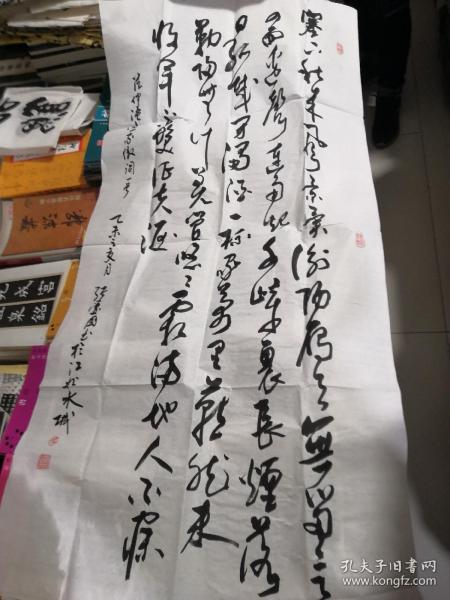 塞下秋来风景异衡阳雁去無留意
四面边声连角起千嶂裏长煙落
日孤城闭浊酒一杯家万里燕然未
勒归无计羌管悠悠霜满地人不寐
将军白发征夫泪
范仲淹渔家傲词一首
乙未之夏月 书於江北水城
成宮
泉銘
孔夫子旧书网
www.kongfz.com